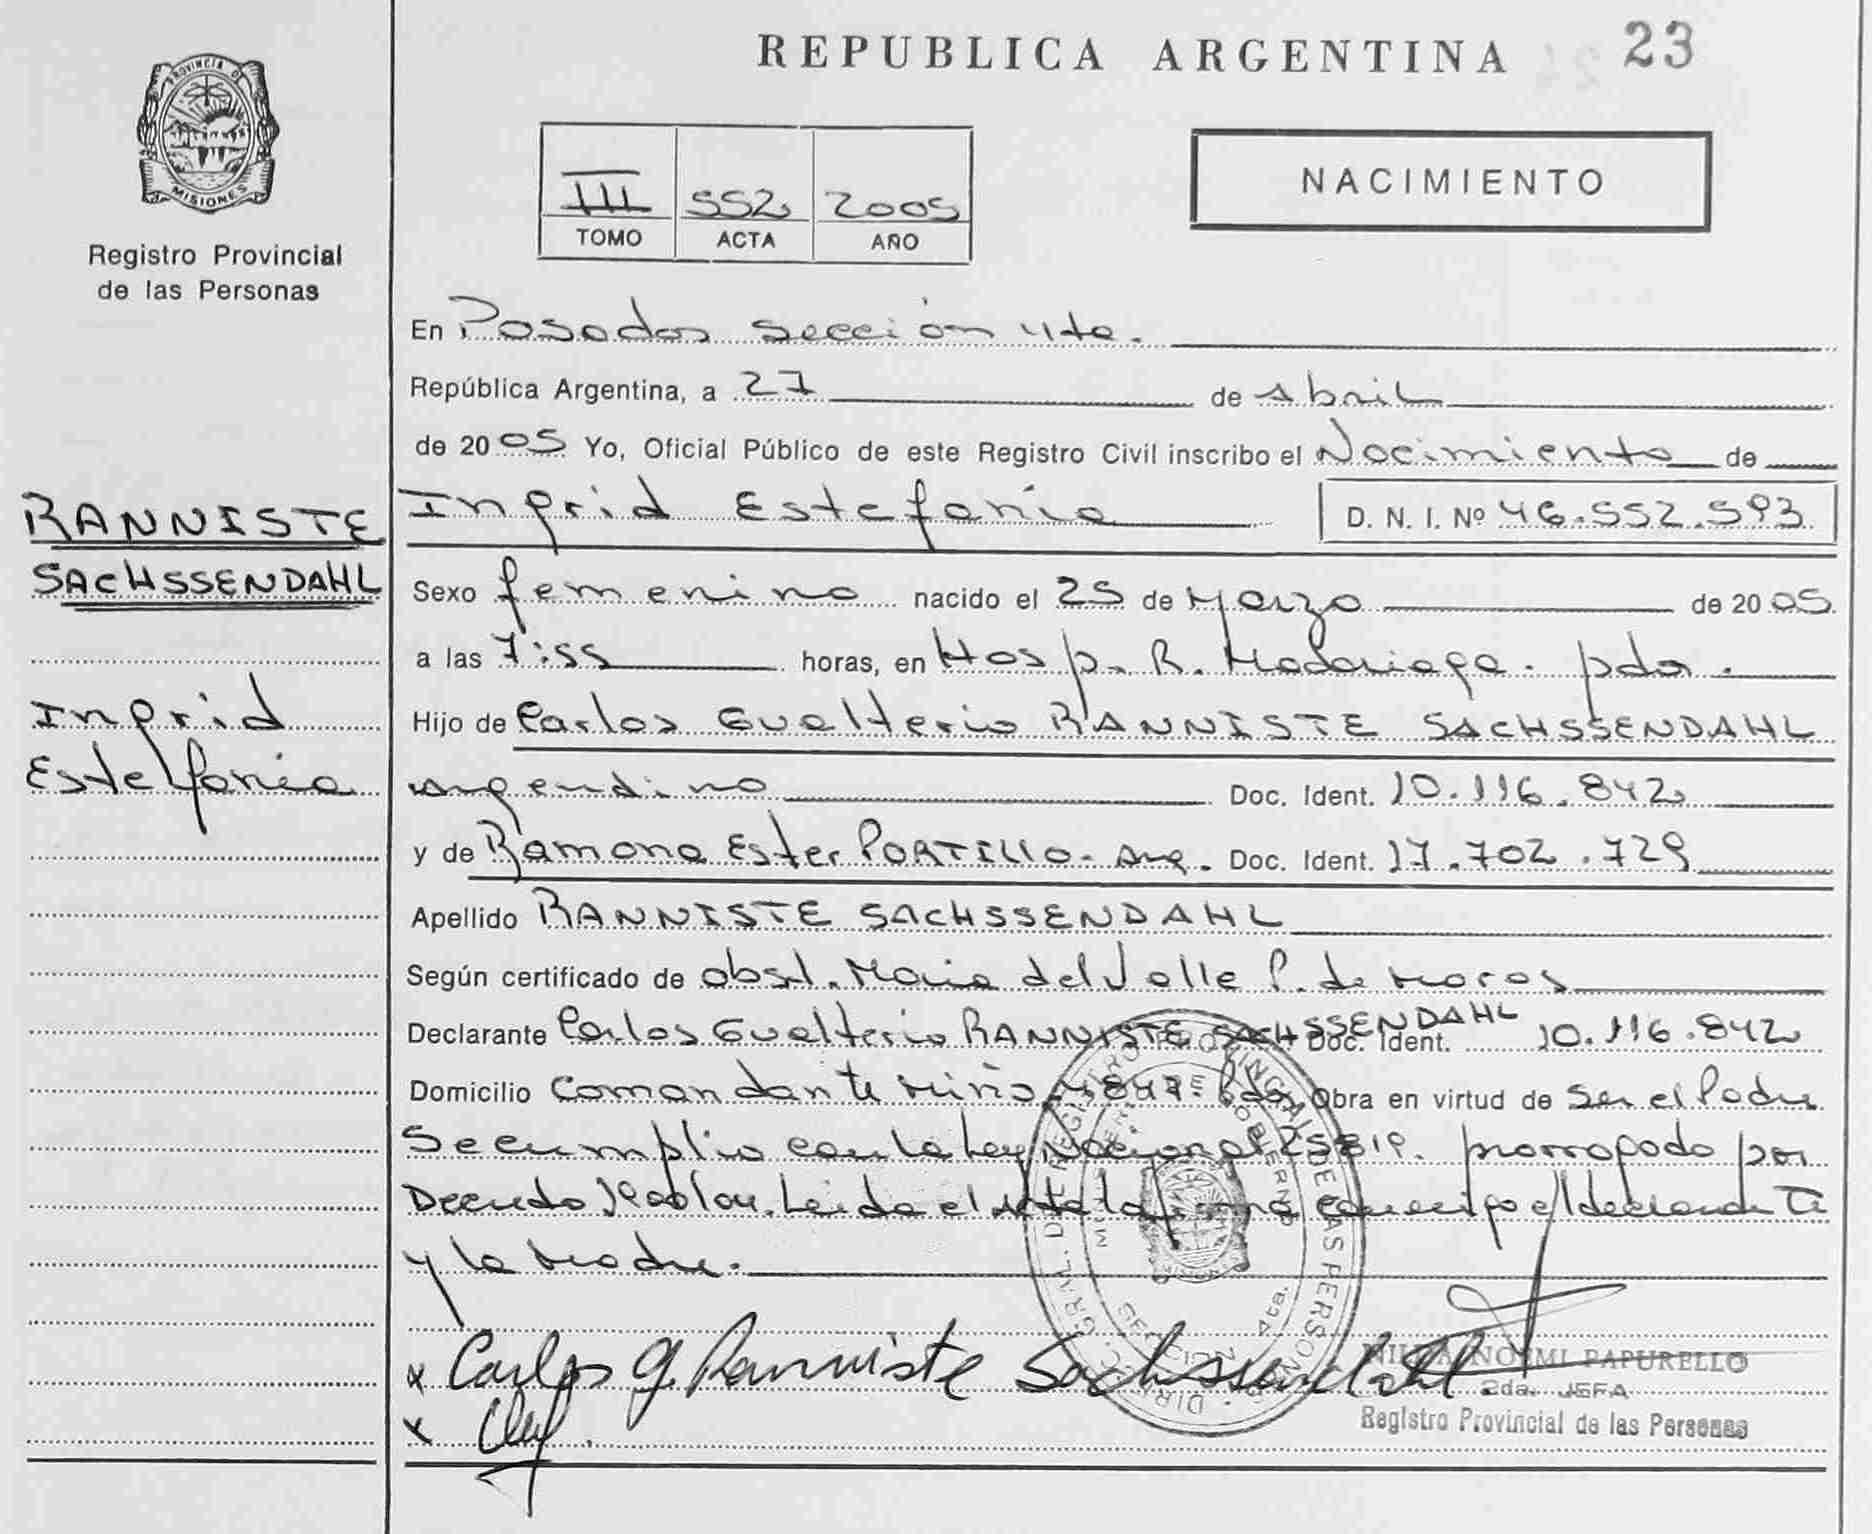 REPUBLICA ARGENTINA 23
PROVINCIA DE
MISIONES
Registro Provincial
de las Personas
III 552 2005
TOMO ACTA AÑO
NACIMIENTO
RANNISTE
SACHSSENDAHL
Ingrid
Estefanía
En Posadas sección 4ta.
República Argentina, a 27 de Abril
de 2005 Yo, Oficial Público de este Registro Civil inscribo el Nacimiento de
Ingrid Estefanía D. N. I. Nº 46.552.593
Sexo femenino nacido el 25 de Marzo de 2005
a las 7:55 horas, en Hosp. R. Madariaga. pdas.
Hijo de Carlos Gualterio RANNISTE SACHSSENDAHL
argentino Doc. Ident. 10.116.842
y de Ramona Ester PORTILLO - Arg. Doc. Ident. 17.702.729
Apellido RANNISTE SACHSSENDAHL
Según certificado de obst. Maria del Valle P. de
Declarante Carlos Gualterio RANNISTE SACHSSENDAHL Doc. Ident. 10.116.842
Domicilio Comandante Miño 4847 - Pdas Obra en virtud de ser el Padre
Se cumplio con la Ley Nacional 25819. prorrogado por
Decreto Leida el Acta la firma conmigo el declarante
y la Madre.
x Carlos G. Ranniste Sachssendahl
x
NOEMI PAPURELLO
2da. JEFA
Registro Provincial de las Personas
DIREC. GRAL. DE REGISTRO PROVINCIAL DE LAS PERSONAS
SECCION 4ta.